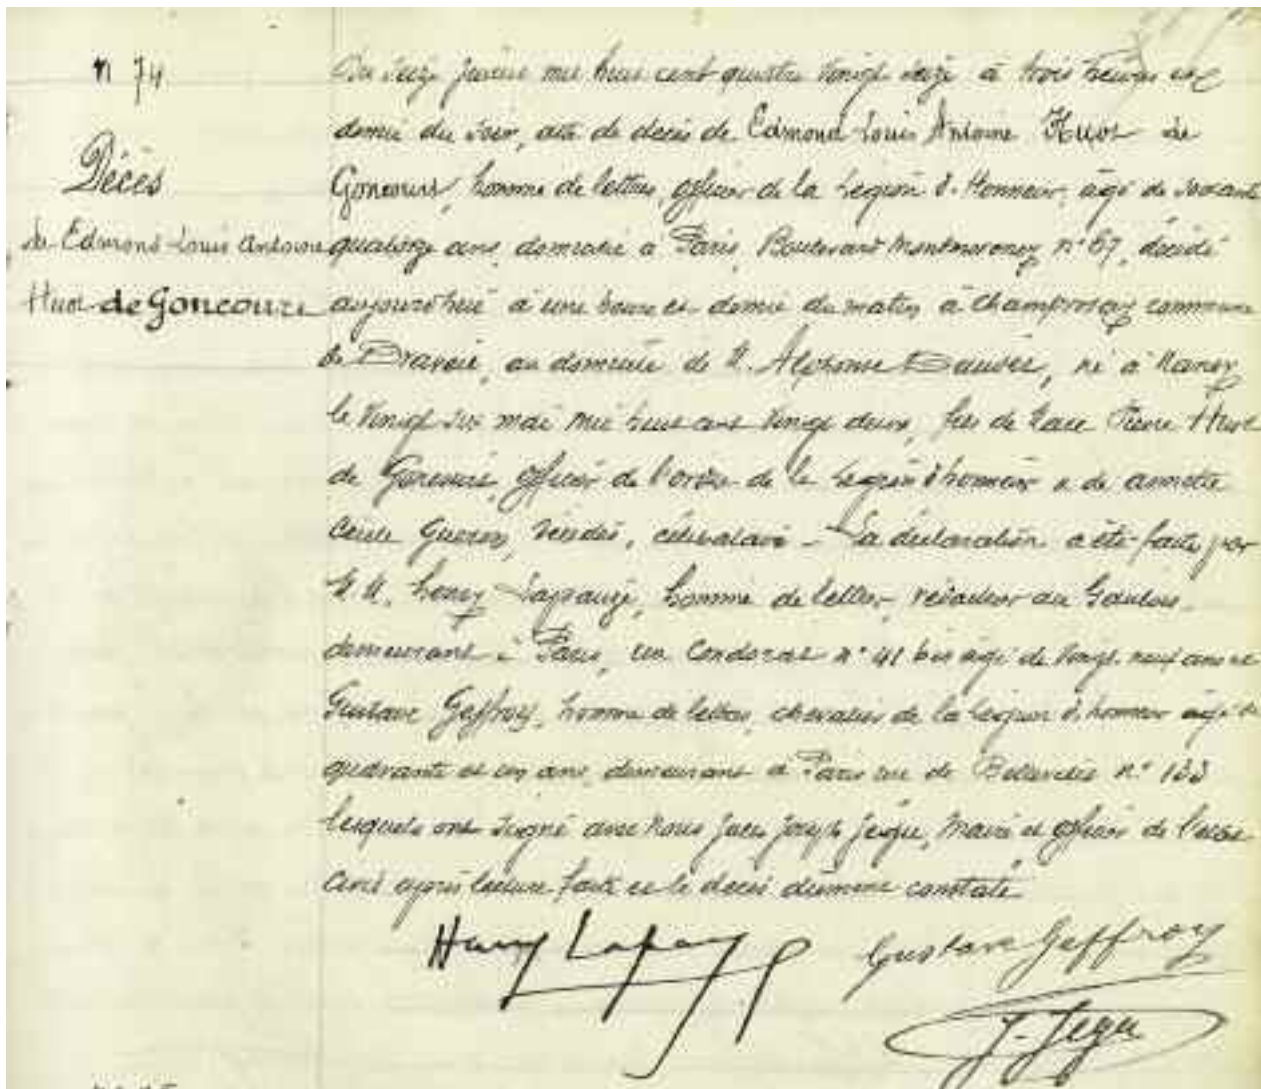 n 74
Décès
de Edmond Louis Antoine
Huot de Goncourt
Du seize juillet mil huit cent quatre vingt seize à trois heures et
demie du soir, acte de décès de Edmond Louis Antoine Huot de
Goncourt, homme de lettres, officier de la Légion d'Honneur, âgé de soixante
quatorze ans, domicilié à Paris, Boulevard Montmorency n° 67, décédé
aujourd'hui à une heure et demie du matin à Champrosay commune
de Draveil, au domicile de M. Alphonse Daudet, né à Nancy
le vingt six mai mil huit cent vingt deux, fils de Marc Pierre Huot
de Goncourt, officier de l'ordre de la Légion d'honneur et de Annette
Cécile Guérin, décédés, célibataire - La déclaration a été faite par
M.M. Henry Lapauze, homme de lettres, rédacteur au Gaulois,
demeurant à Paris, rue Condorcet n° 41 bis âgé de vingt neuf ans et
Gustave Geffroy, homme de lettres, chevalier de la Légion d'honneur âgé de
quarante et un ans, demeurant à Paris rue de Belleville n° 133
lesquels ont signé avec nous Joseph Jégu, Maire et officier de l'état
civil après lecture faite et le décès dûment constaté.
Henry Lapauze
Gustave Geffroy
J. Jégu